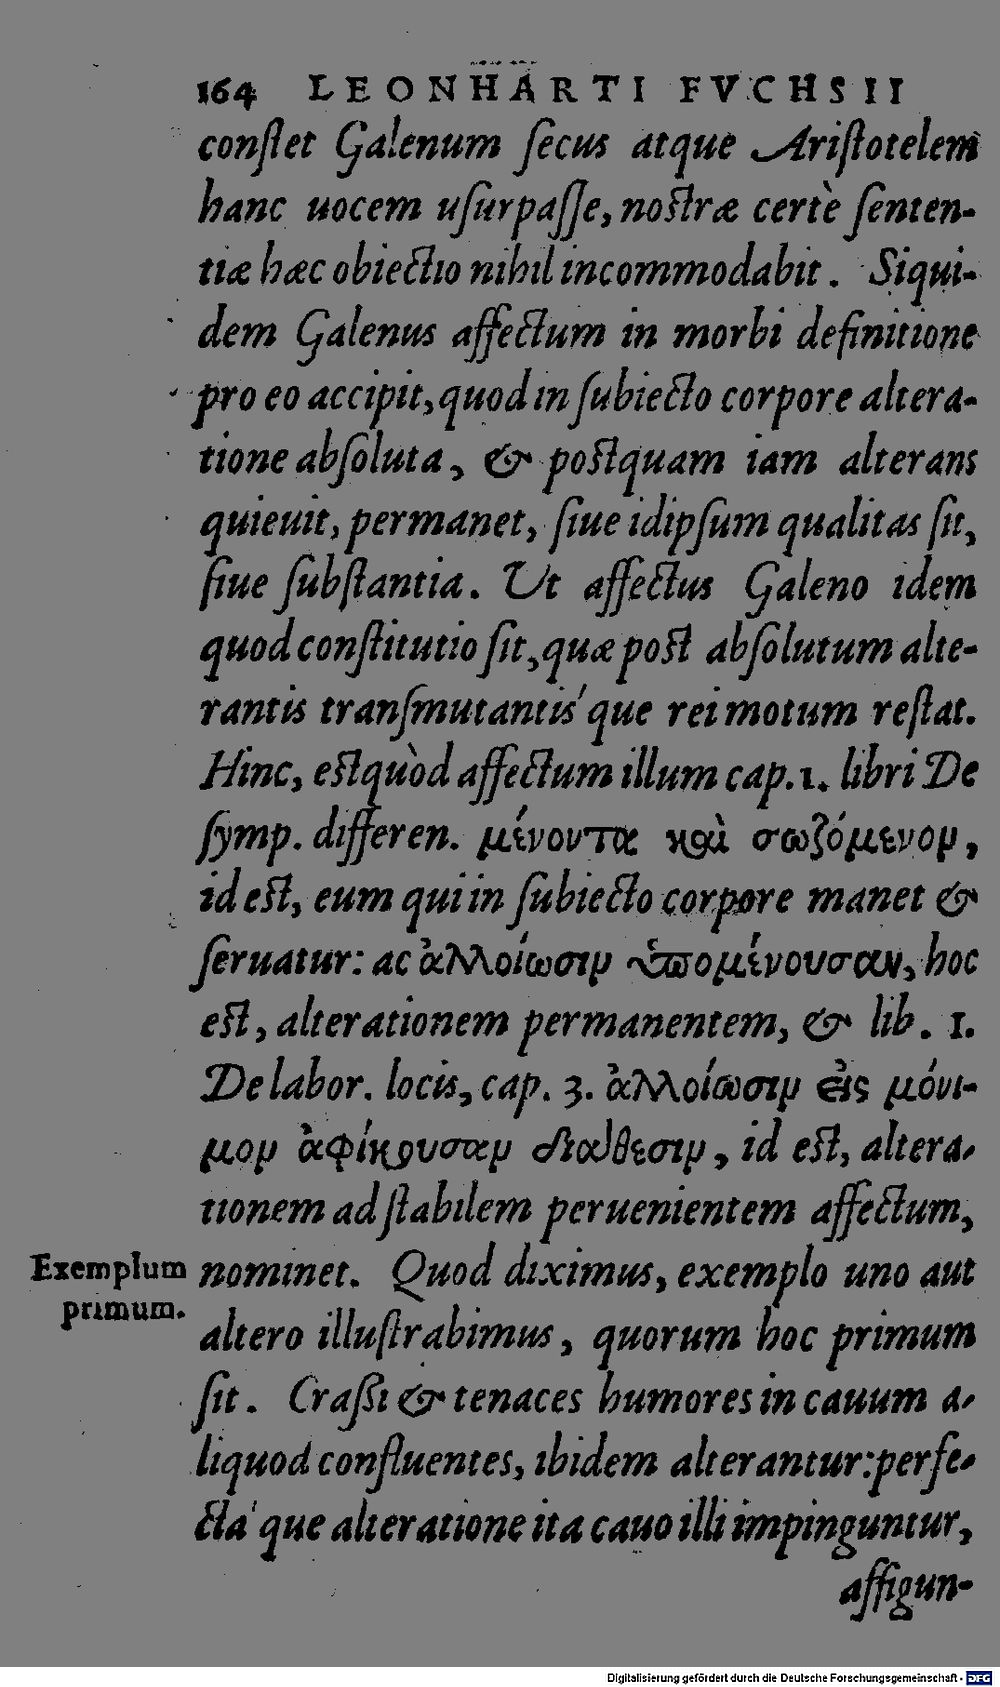 164 LEONHARTI FVCHSII
conſtet Galenum ſecus atque Ariſtotelem
hanc uocem uſurpaſſe, noſtræ certè ſenten-
tiæ hæc obiectio nihil incommodabit. Siqui-
dem Galenus affectum in morbi definitione
pro eo accipit, quod in ſubiecto corpore altera-
tione abſoluta, & poſtquam iam alterans
quieuit, permanet, ſiue idipſum qualitas ſit,
ſiue ſubſtantia. Ut affectus Galeno idem
quod conſtitutio ſit, quæ poſt abſolutum alte-
rantis tranſmutantis'que rei motum reſtat.
Hinc, eſtquòd affectum illum cap. 1. libri De
ſymp. differen. μένοντα καὶ σωζόμενομ,
id eſt, eum qui in ſubiecto corpore manet &
ſeruatur: ac ἀλλοίωσιμ ὑπομένουσαν, hoc
eſt, alterationem permanentem, & lib. 1.
De labor. locis, cap. 3. ἀλλοίωσιμ εἰς μόνι-
μομ ἀφίκουσαμ διάθεσιμ, id eſt, altera-
tionem ad ſtabilem peruenientem affectum,
Exemplum primum.
nominet. Quod diximus, exemplo uno aut
altero illuſtrabimus, quorum hoc primum
ſit. Craſsi & tenaces humores in cauum a-
liquod confluentes, ibidem alterantur: perfe-
cta'que alteratione ita cauo illi impinguntur,
affigun-
Digitalisierung gefördert durch die Deutsche Forschungsgemeinschaft - DFG